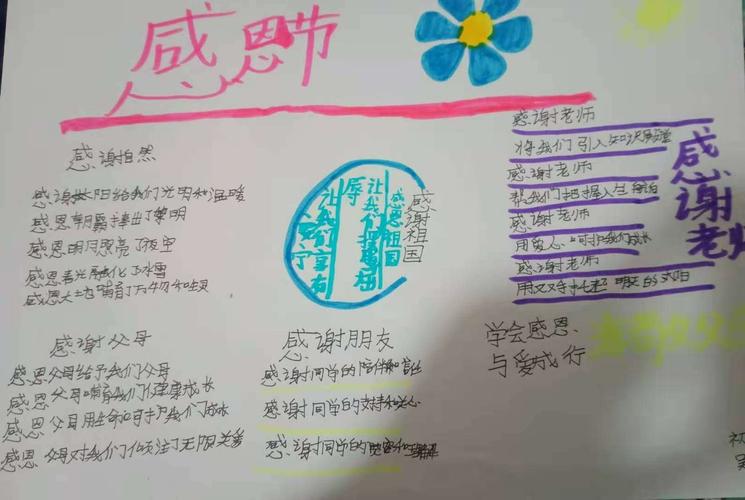 感恩节
感谢自然
感谢太阳给我们光明和温暖
感恩朝霞捧出了黎明
感恩明月照亮了夜空
感恩春光融化了冰雪
感恩大地哺育了万物和
感谢祖国
感恩祖国
让我们
辱
让我们享有
宁
感谢老师
将我们引入知识殿堂
感谢老师
帮我们把握人生
感谢老师
用爱心呵护我们成长
感谢老师
用双手托起明天的太阳
感谢老师
感谢父母
感恩父母给予我们父母
感恩父母哺育我们健康成长
感恩父母用生命呵护我们成长
感恩父母对我们倾注了无限关爱
感谢朋友
感谢同学的陪伴和
感谢同学的支持和关心
感谢同学的宽容和理解
学会感恩
与爱成行
初